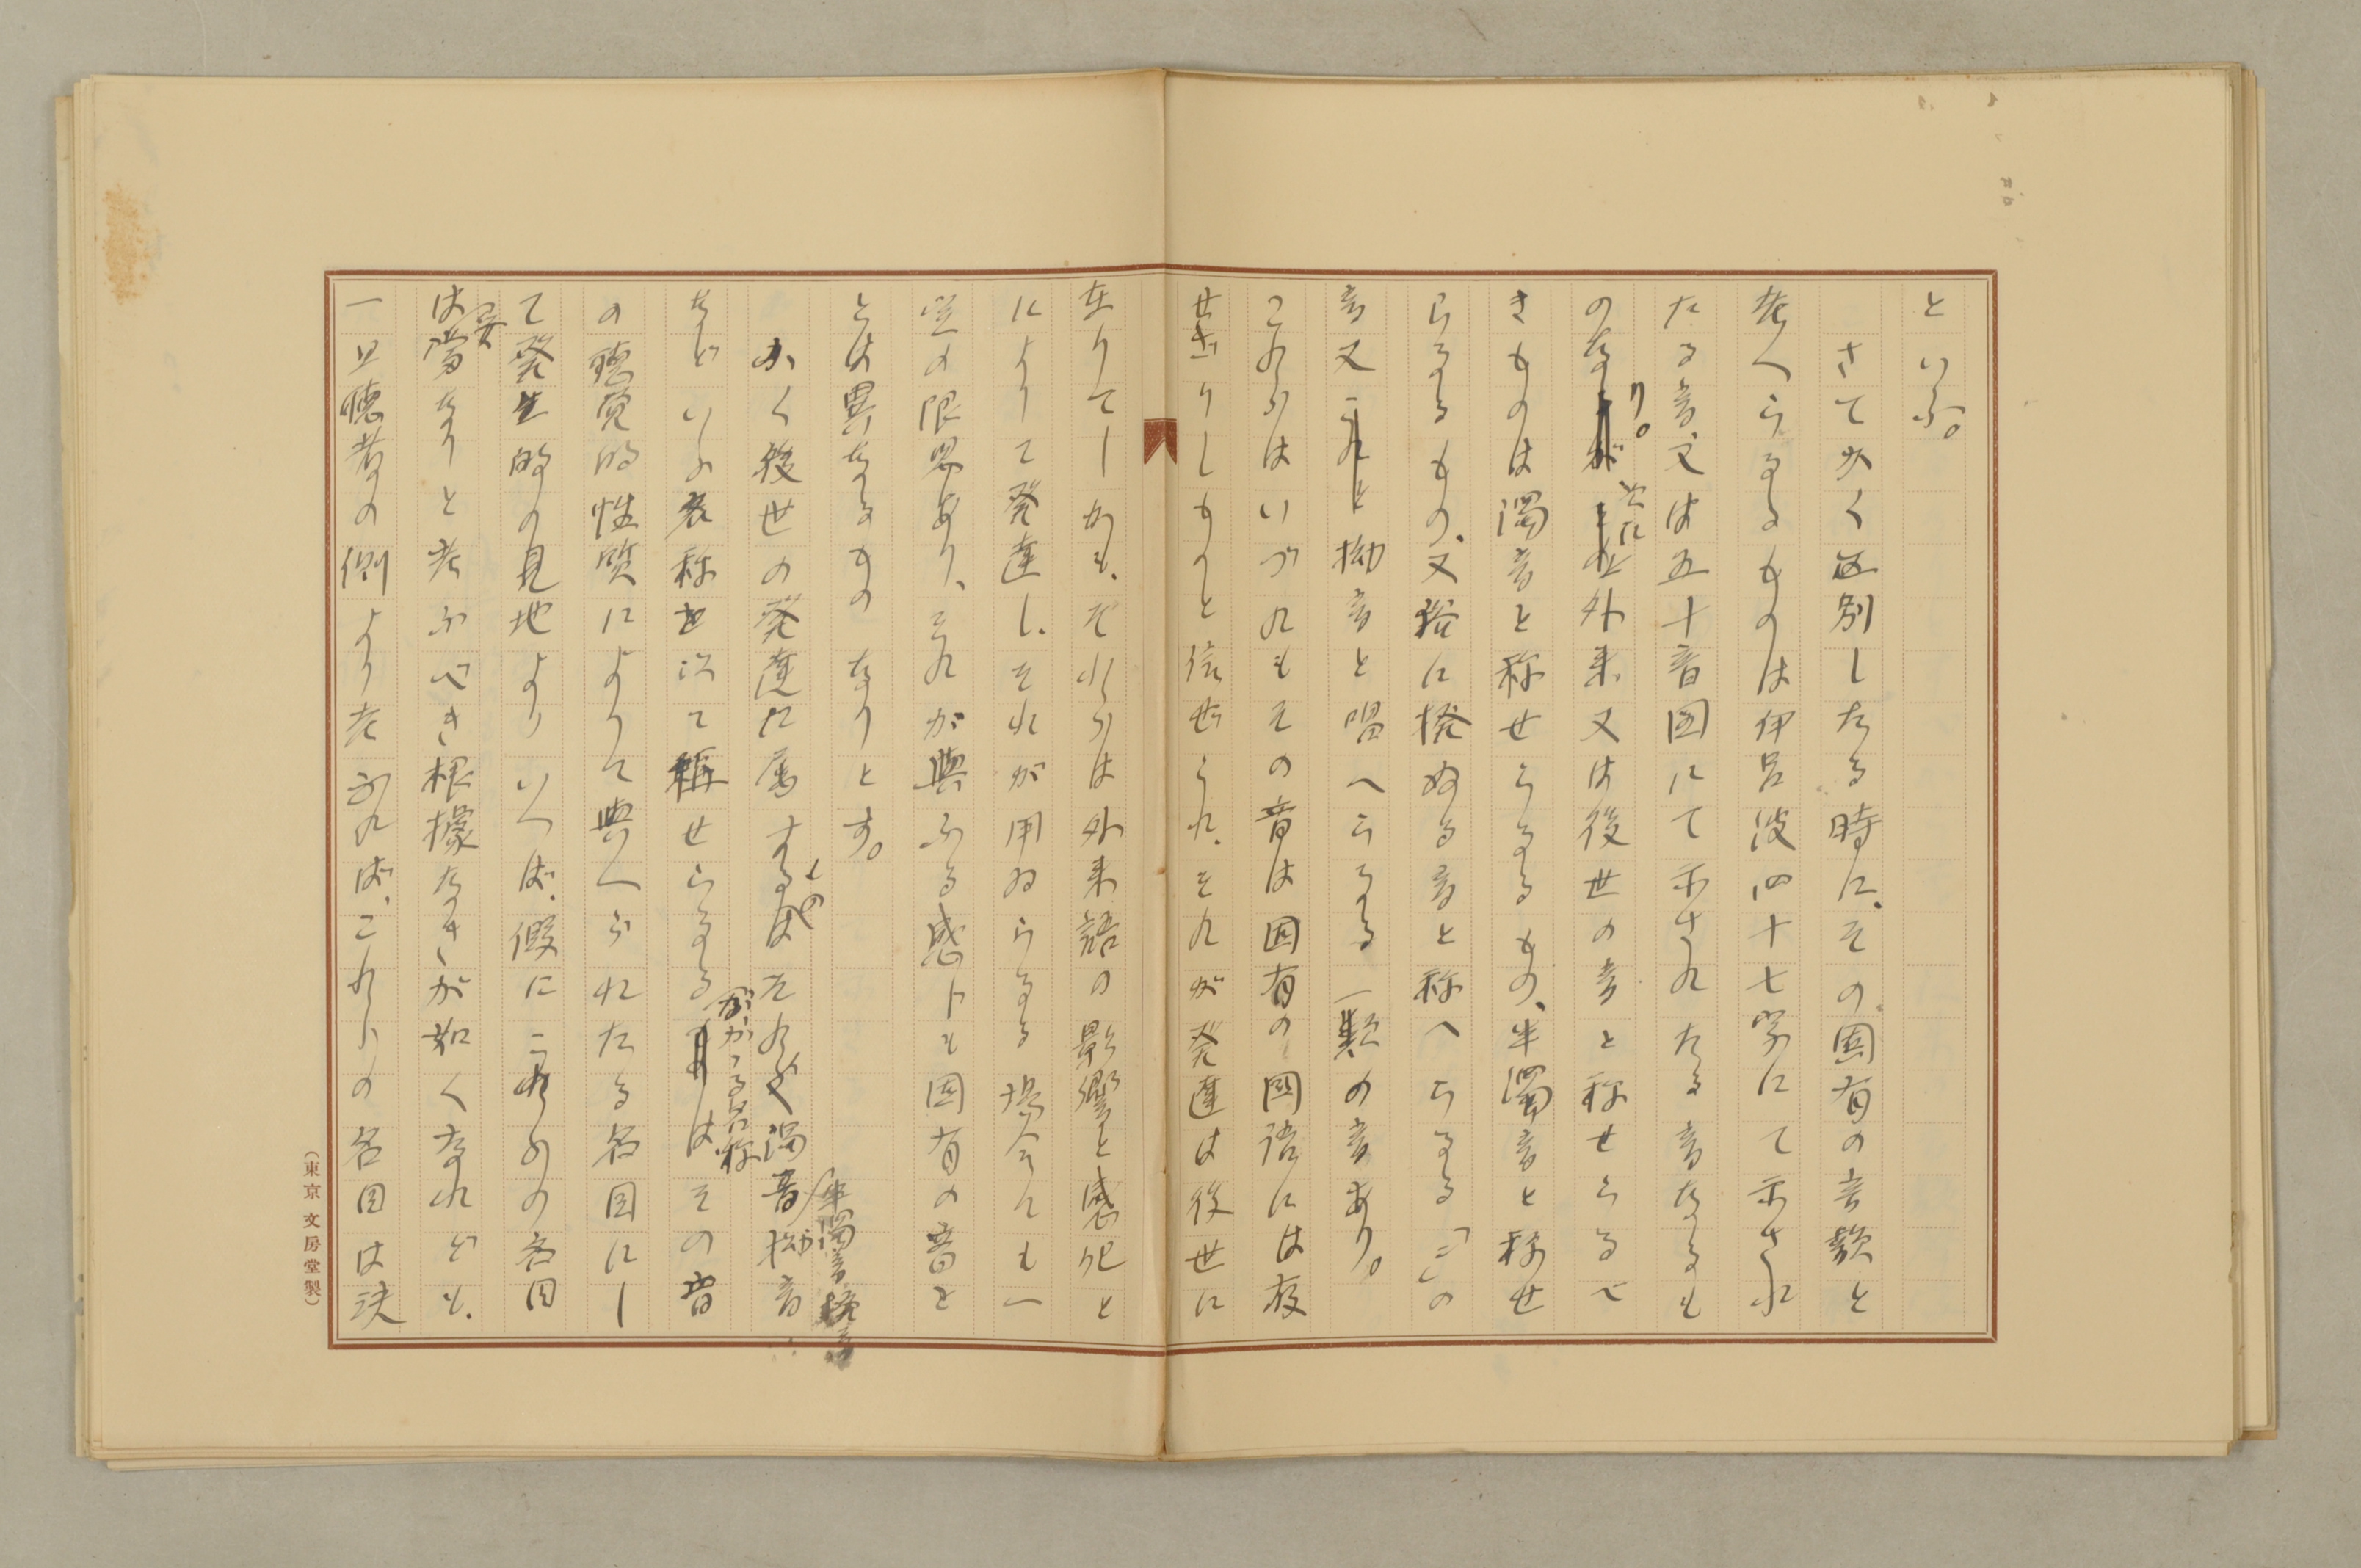 といふ。
さてかく区別したる時に、その固有の音類と
考へらるるものは伊呂波四十七字にて示され
たる音又は五十音図にて示されたる音なるも
のなり。然に外来又は後世の音と称せらるべ
きものは濁音と称せらるるもの、半濁音と称せ
らるるもの、又俗に撥ぬる音と称へらるる「ン」の
音又拗音と唱へらるる一類の音あり。
これらはいづれもその音は固有の国語には存
せざりしものと信ぜられ、それが発達は後世に
在りてしかも、それらは外来語の影響と感化と
によりて発達し、それが用ゐらるる場合にも一
定の限界あり、それが與ふる感じも固有の音と
とは異なるものなりとす。
かく後世の発達に属するものはそれらが濁音半濁音撥音拗音
などいふ名称を以て称せらるるがかかる名称は、その音
の聴覚的性質によりて與へられたる名目にし
て発生的の見地よりいへば、假にこれらの名目
は妥当なりと考ふべき根據なきが如くなれども、
一旦聴者の側より在ふれば、これらの名目は決
(東京 文房堂製)